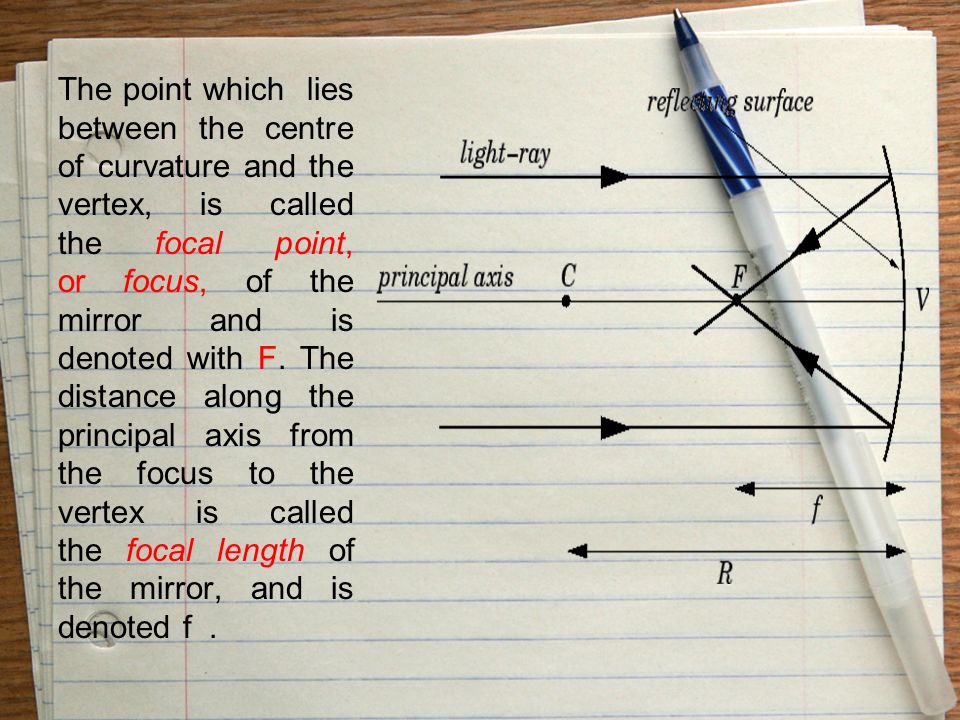 The point which lies
between the centre
of curvature and the
vertex, is called
the focal point,
or focus, of the
mirror and is
denoted with F. The
distance along the
principal axis from
the focus to the
vertex is called
the focal length of
the mirror, and is
denoted f .
reflecting surface
light-ray
principal axis
C
F
V
f
R